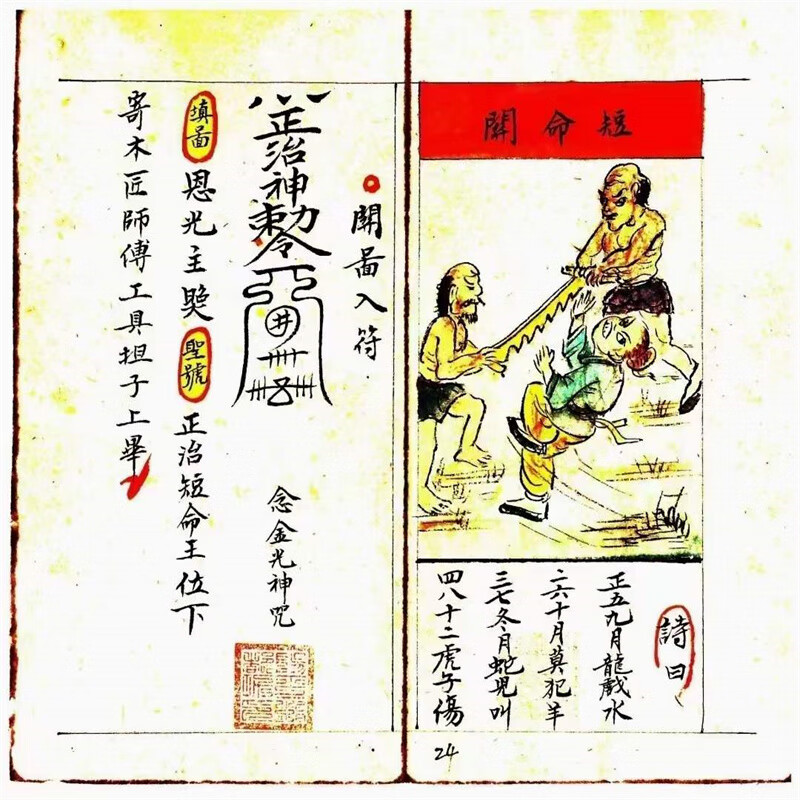 短命關
詩曰
正五九月龍戲水
二六十月莫犯羊
三七冬月蛇兒叫
四八十二虎子傷
24
關啚入符
正治神敕令
井
念金光神咒
填啚 恩光主 聖號 正治短命王位下
寄木匠師傅工具担子上畢